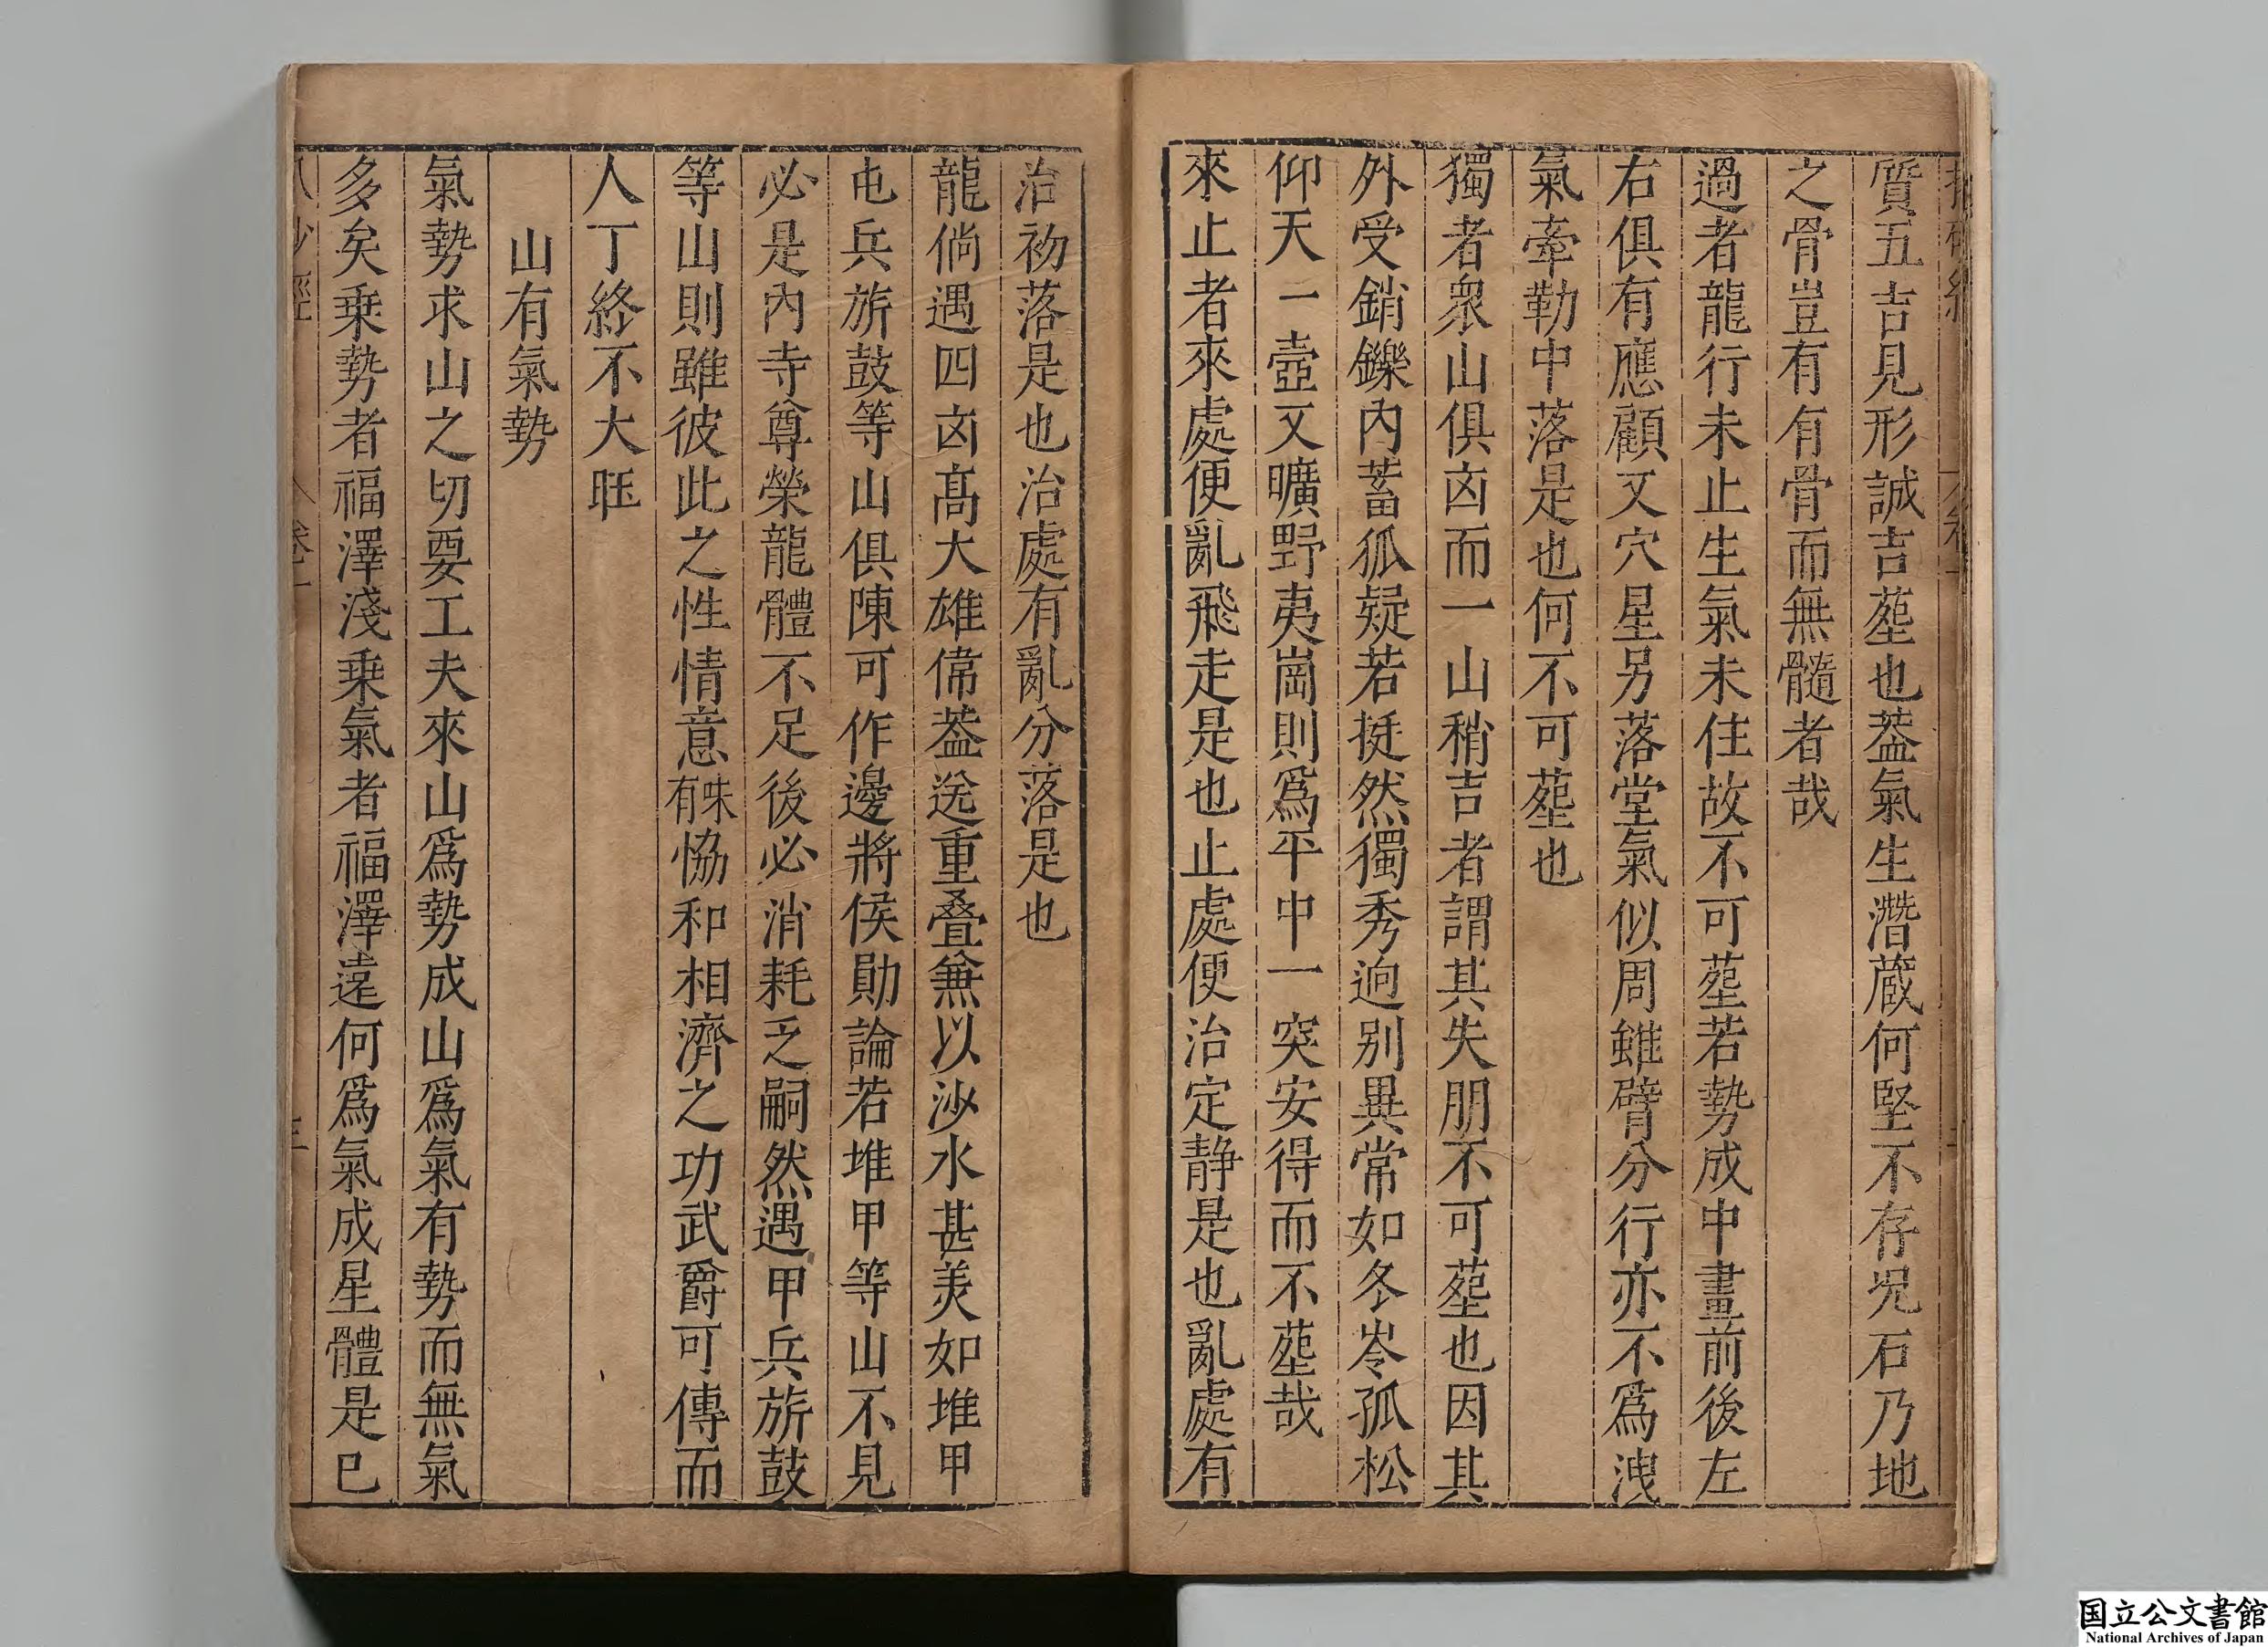 質五吉見形誠吉塟也葢氣生潛蔵何堅不存況石乃地
之骨豈有有骨而無髓者哉
過者龍行未止生氣未住故不可塟若勢成中畫前後左
右俱有應顧又穴星另落堂氣似周雖臂分行亦不爲洩
氣牽勒中落是也何不可塟也
獨者衆山俱卤而一山稍吉者謂其失朋不可塟也因其
外受銷鑠內蓄狐疑若挺然獨秀逈别異常如冬岺孤松
仰天一壼又曠野夷崗則爲平中一突安得而不塟哉
來止者來處便亂飛走是也止處便治定静是也亂處有
治初落是也治處有亂分落是也
龍倘遇四卤髙大雄偉葢送重叠兼以沙水甚美如堆甲
屯兵旂鼓等山俱陳可作邊將侯勛論若堆甲等山不見
必是內寺尊榮龍體不足後必消耗乏嗣然遇甲兵旂鼓
等山則雖彼此之性情意有味恊和相濟之功武爵可傳而
人丁終不大旺
山有氣勢
氣勢求山之切要工夫來山爲勢成山爲氣有勢而無氣
多矣乗勢者福澤淺乗氣者福澤遠何爲氣成星體是已
卷一
三
国立公文書館
National Archives of Japan